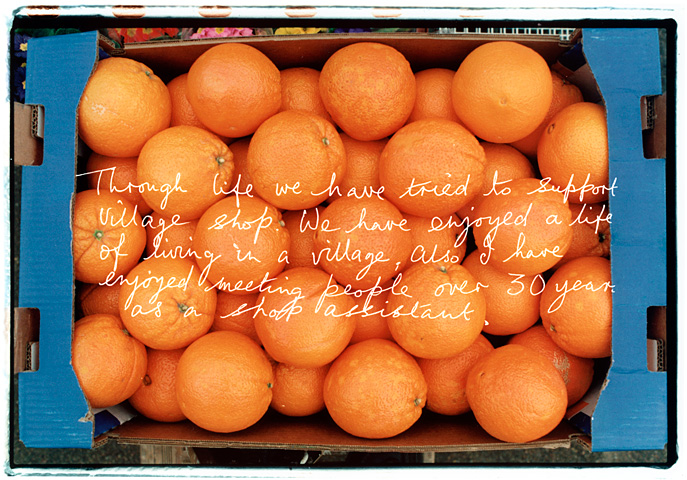 Through life we have tried to support
village shop. We have enjoyed a life
of living in a village, also I have
enjoyed meeting people over 30 year
as a shop assistant.